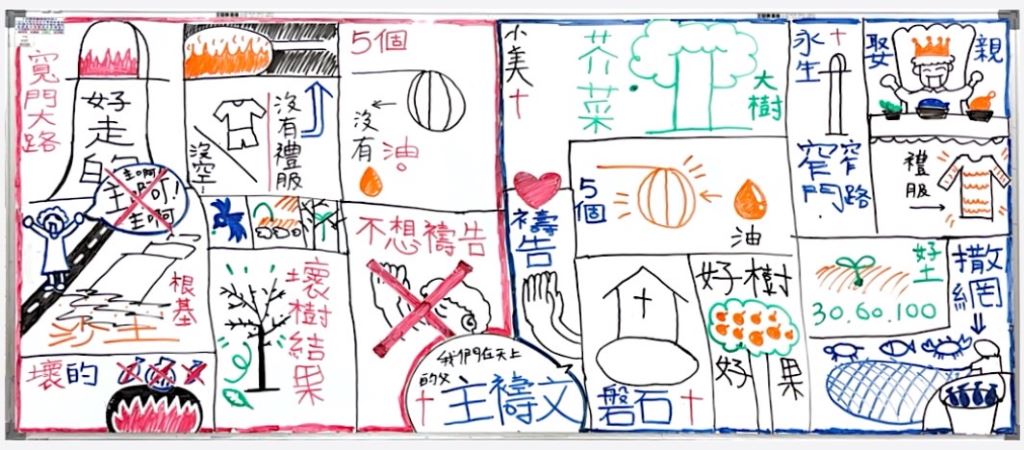 寬門大路
好走的
沒空!
沒有禮服
5個
沒有
油
主啊
主啊!
主啊
根基
沙土
壞的
壞樹結果
不想禱告
我們在天上
的父
主禱文
小美
芥菜
大樹
禱告
5個
油
磐石
好樹
好果
永生
窄門
窄路
娶親
禮服
好土
30.60.100
撒網